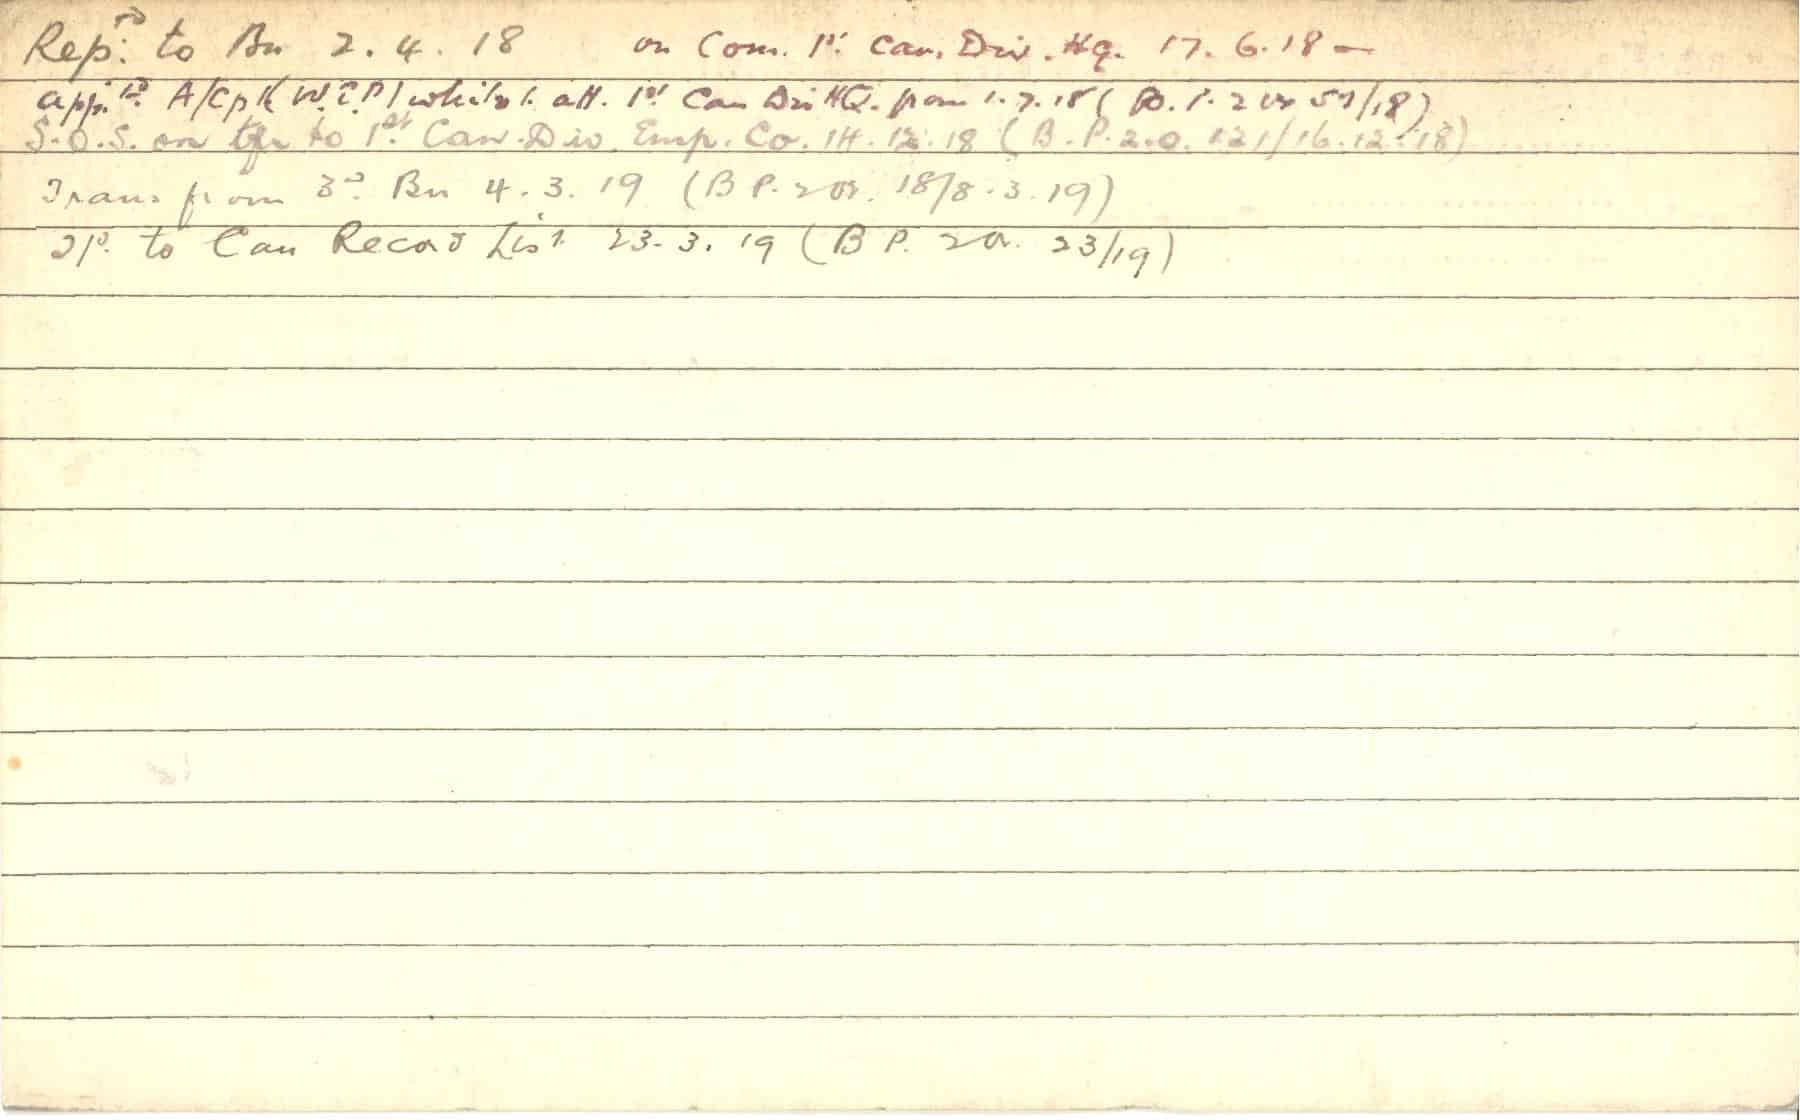 Repᵗᵈ: to Bn 2.4.18 on Com. 1st. Can. Div. Hq. 17.6.18 —
app.td A/Cpl (W.E.P) whilst att. 1st Can Div HQ. from 1.7.18 (B.P. 2 or 57/18)
S.O.S. on tfr to 1st. Can. Div. Emp. Co. 14.12.18 (B.P.2.O. 121/16.12.18)
Trans from 3d. Bn 4.3.19 (B P. 2 or. 18/8.3.19)
to Can Record List 23.3.19 (B P. 2 or. 23/19)